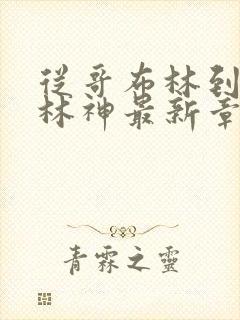 從哥布林到
林神最新章
青霖之靈